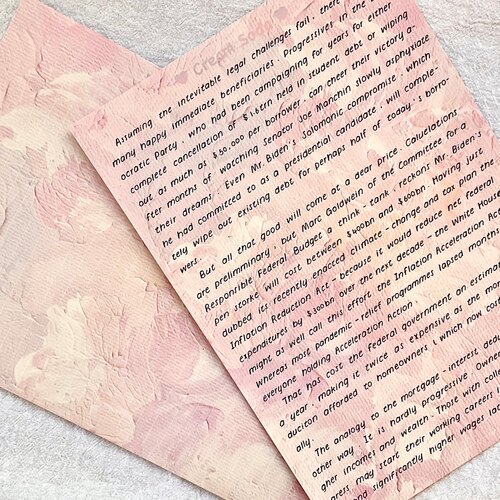 Cream Soda
Assuming the inevitable legal challenges fail, there
many happy immediate beneficiaries. Progressives in the
ocratic Party, who had been campaigning for years for either
complete cancellation of $1.6trn held in student debt or wiping
out as much as $50,000 per borrower, can cheer their victory a-
fter months of watching Senator Joe Manchin slowly asphyxiate
their dreams. Even Mr. Biden's Solomonic compromise, which
he had committed to as a presidential candidate, will comple-
tely wipe out existing debt for perhaps half of today's borro-
wers.
But all that good will come at a dear price. Caluelations
are prelimminary, but Marc Goldwein of the Committee for a
Responsible Federal Budget, a think-tank, reckons Mr. Biden's
pen stroke will cost between $400bn and $600bn. Having just
dubbed its recently enacced climate-change and tax plan the
Inflation Reduction Act-because it would reduce net federal
expenditures by $300bn over the next decade-the White House
might as well call this effort the Inflation Acceleration
Whereas most pandemic-relief programmes lapsed months
everyone holding Acceleration Action.
That has cost the federal government an estimat
a year, making it twice as expensive as the mor
duciton afforded to homeowners (which now con
ally.
The analogy to the mortgage-interest dedu
other way. It is hardly progressive. Owne
gher incomes and wealth. Those with colle
may start their working careers
and significantly higher wages la